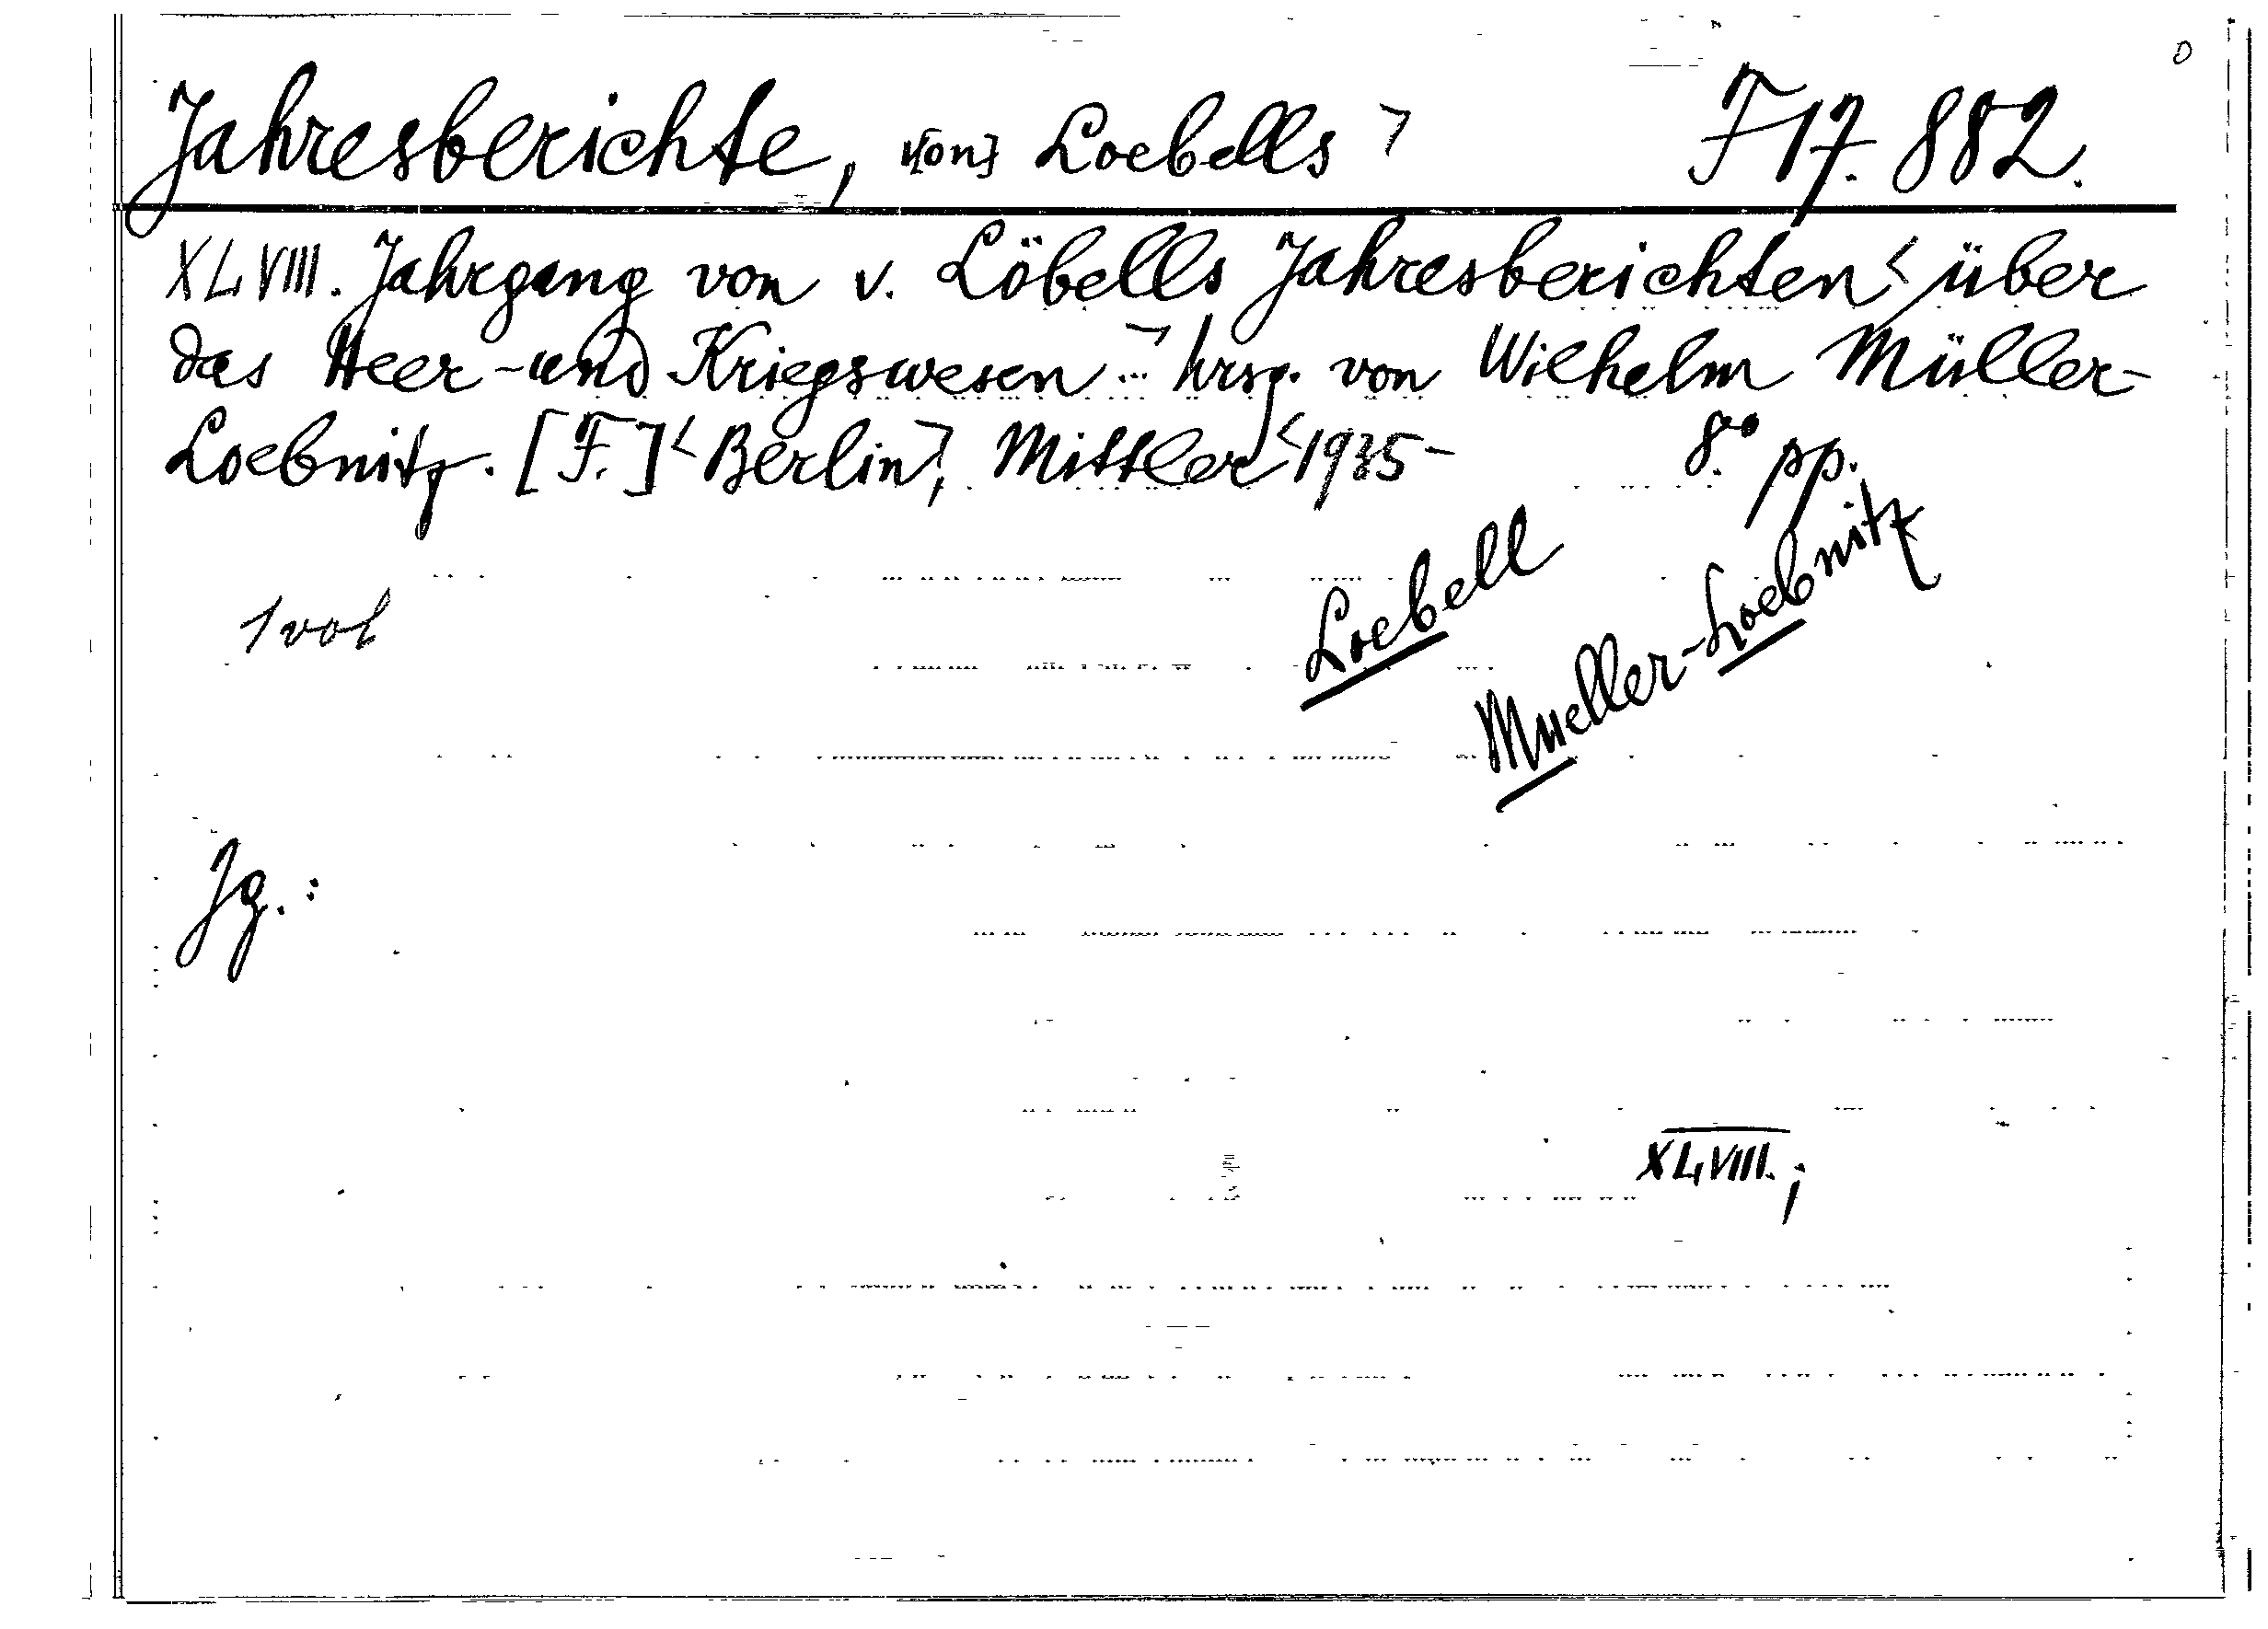 Jahresberichte, v[on] Loebells ¬ F 17.882.
XLVIII. Jahrgang von v. Löbells Jahresberichten < über
das Heer- und Kriegswesen ... ¬ hrsg. von Wilhelm Müller-
Loebnitz. [F.] < Berlin ¬, Mittler < 1935- 8.° pp.
1 vol
Loebell
Mueller-Loebnitz
Jg.:
XLVIII.;